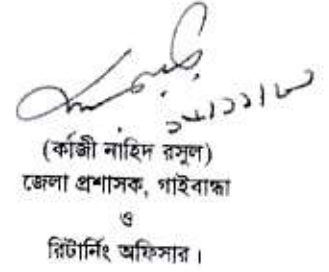 (কাজী নাহিদ রসুল)
জেলা প্রশাসক, গাইবান্ধা
ও
রিটার্নিং অফিসার।